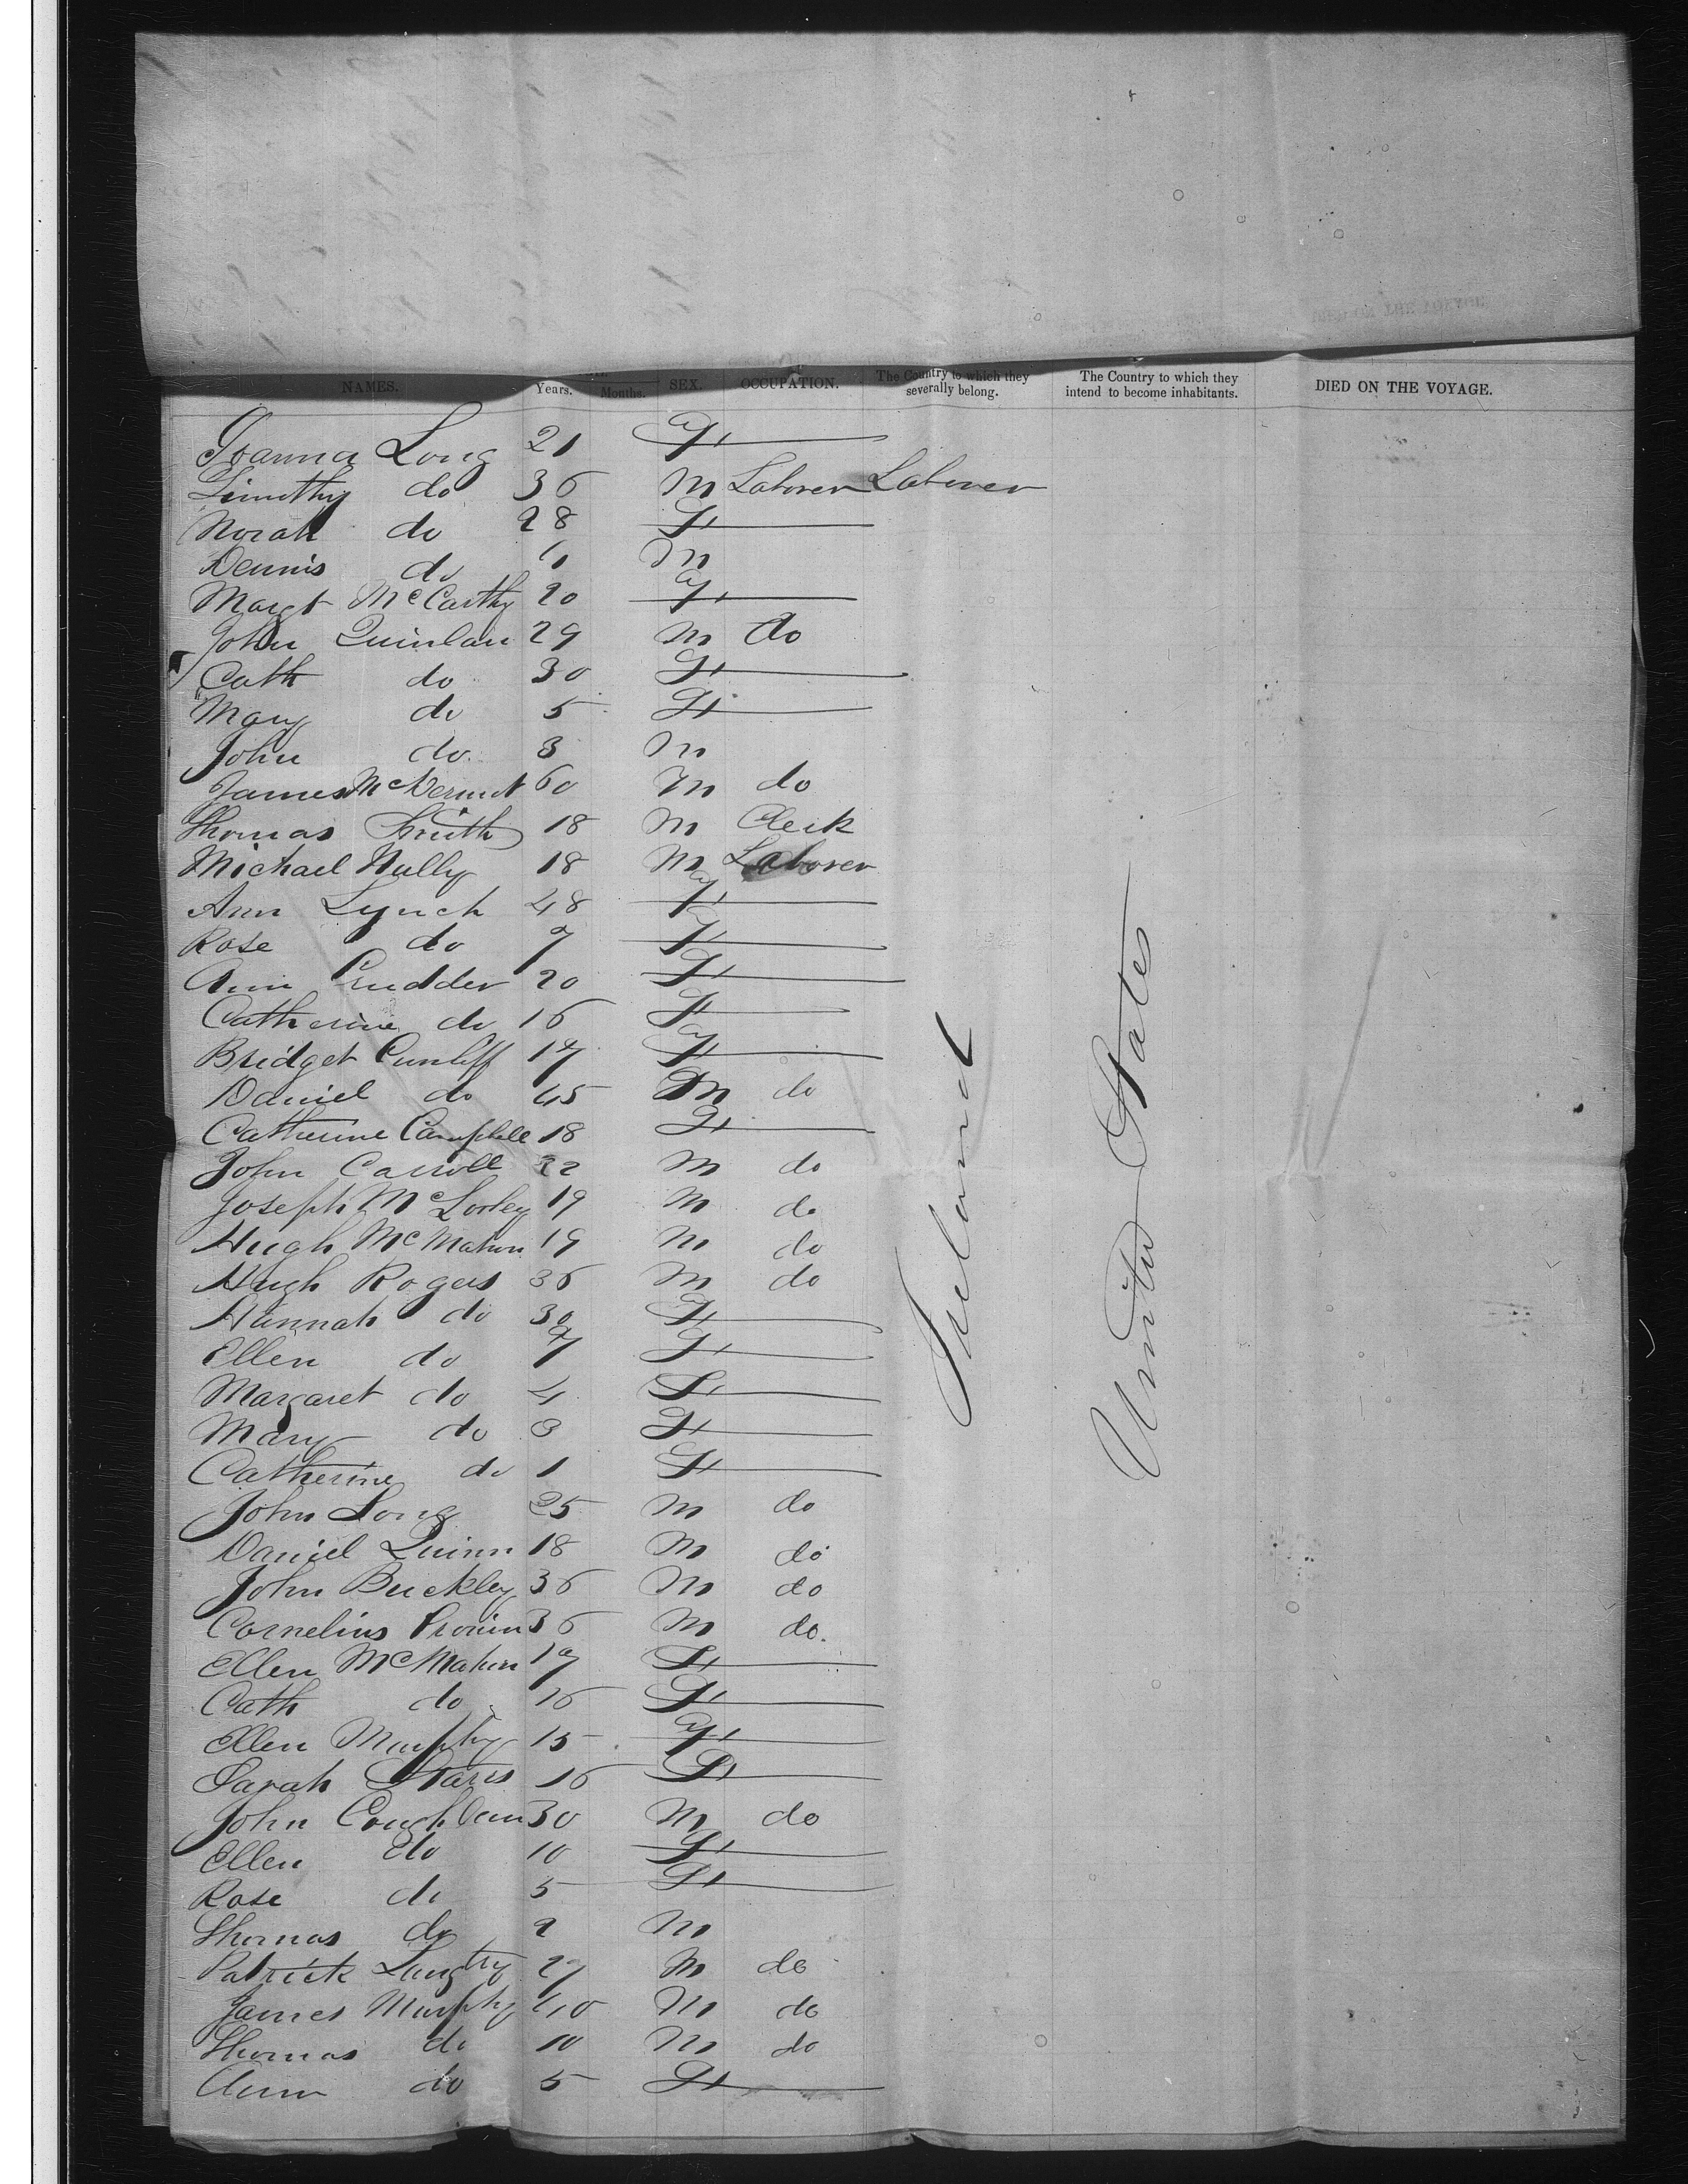 NAMES. Years. Months. SEX. OCCUPATION. The Country to which they severally belong. The Country to which they intend to become inhabitants. DIED ON THE VOYAGE.
Joanna Long 21 F
Timothy do 36 M Laborer Laborer
Norah do 28 F
Dennis do M
Margt McCarthy 20 F
John Quinlan 29 M do
Cath do 30 F
Mary do 5 F
John do 3 M
James McDermot 60 M do
Thomas Smith 18 M Clerk
Michael Nully 18 M Laborer
Ann Lynch 48 F
Rose do 7 F
Ann Prudder 20 F
Catherine do 16 F
Bridget Cunliff 17 F
Daniel do 45 M do
Catherine Campbell 18 F
John Carroll 22 M do
Joseph McSorley 19 M do
Hugh McMahon 19 M do
Hugh Rogers 36 M do
Hannah do 30 F
Ellen do 7 F
Margaret do 4 F
Mary do 3 F
Catherine do 1 F
John Long 25 M do
Daniel Quinn 18 M do
John Buckley 36 M do
Cornelius Cronin 36 M do
Ellen McMahon 17 F
Cath do 16 F
Ellen Murphy 15 F
Sarah 16 F
John Coughlan 30 M do
Ellen do 10 F
Rose do 5 F
Thomas do 2 M
Patrick Langtry 27 M do
James Murphy 40 M do
Thomas do 10 M do
Ann do 5 F
Ireland
United States